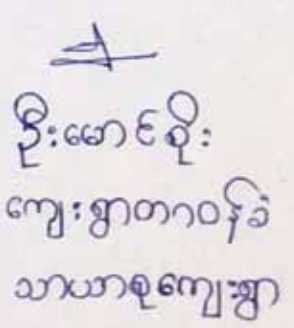 ဦးမောင်စိုး
ကျေးရွာတာဝန်ခံ
သာယာစုကျေးရွာ